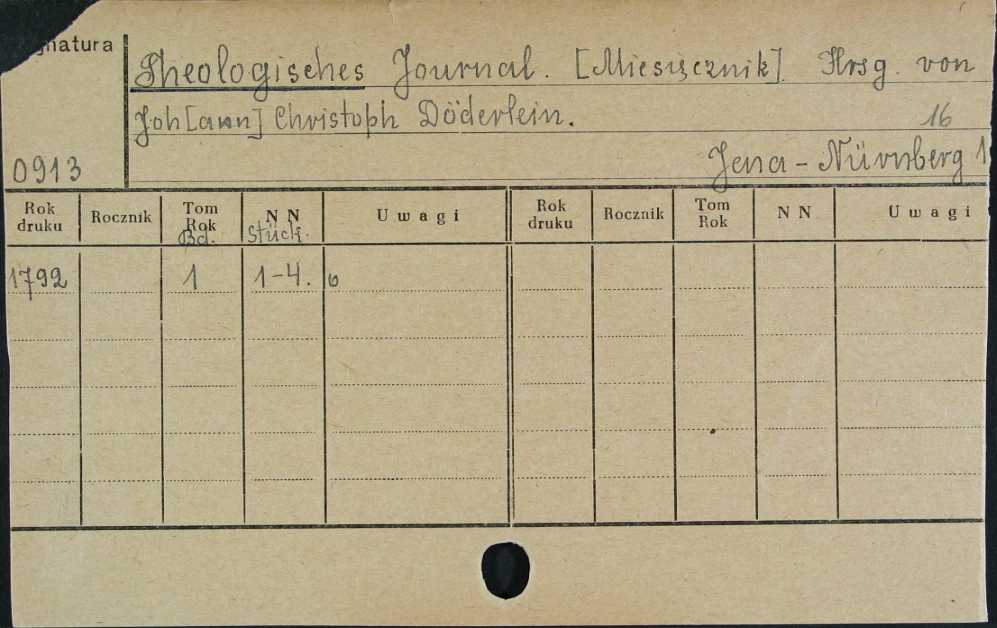 gnatura
Theologisches Journal. [Miesięcznik]. Hrsg. von
Joh[ann] Christoph Döderlein. 16
0913 Jena - Nürnberg 1
Rok druku Rocznik Tom Rok Bd. NN Stück. Uwagi Rok druku Rocznik Tom Rok NN Uwagi
1792 1 1-4.